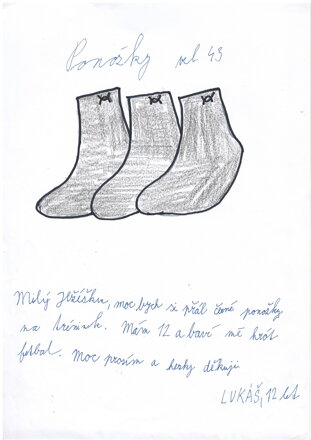 Ponožky vel 43
Milý Ježíšku, moc bych si přál černé ponožky
na trénink. Mám 12 a baví mě hrát
fotbal. Moc prosím a hezky děkuji
LUKÁŠ, 12 let